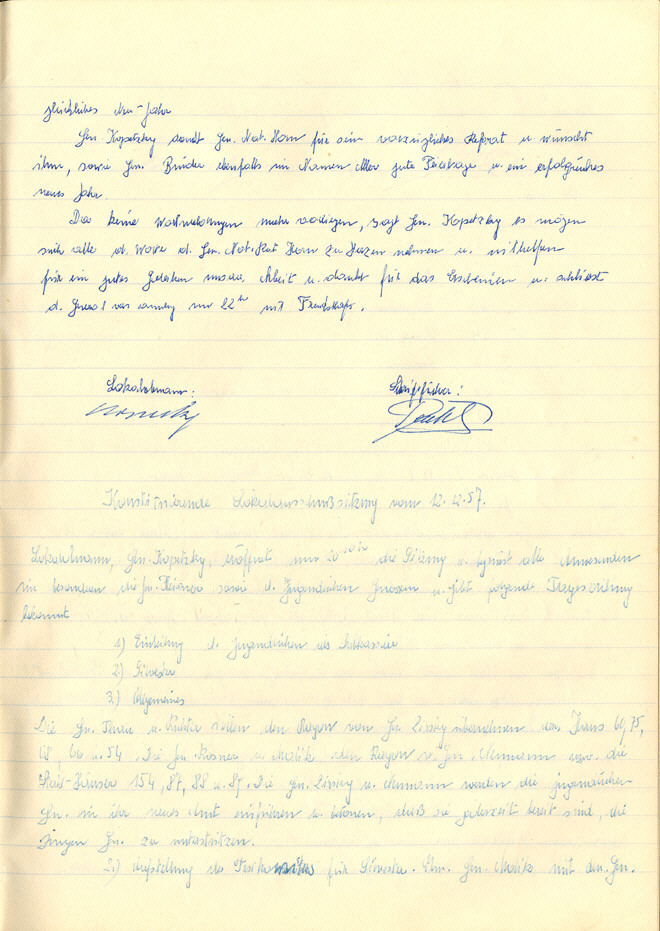 glückliches Neu-Jahr
Gen. Kopetzky dankt Gen. Nat. Horn für sein vorzügliches Referat u. wünscht
ihm, sowie Gen. Binder ebenfalls im Namen Aller gute Feiertage u. ein erfolgreiches
neues Jahr.
Da keine Wortmeldungen mehr vorliegen, sagt Gen. Kopetzky es mögen
sich alle d. Worte d. Gen. Nat. Rat Horn zu Herzen nehmen u. mithelfen
für ein gutes Gelingen unserer Arbeit u. dankt für das Erscheinen u. schließt
d. um 22 mit Freundschaft.
Lokalobmann: Schriftführer:
Konstituierende Lokalausschußsitzung vom 12.12.57.
Lokalobmann, Gen. Kopetzky, eröffnet um die Sitzung u. begrüßt alle Anwesenden
im besonderen die Gn. sowie d. Jugendlichen Genossen u. gibt folgende Tagesordnung
bekannt
1) Einteilung d. Jugendlichen als Subkassiere
2) Silvester
3) Allgemeines
Die Gn. u. Richter sollen den Rayon von Gn. übernehmen usw. Haus 60, 75,
68, 66 u. 54. Die Gn. Rosner u. Malik den Rayon v. Gn. Neumann usw. die
Häuser 154, 87, 88 u. 89. Die Gen. u. Neumann werden die jugendlichen
Gn. in ihr neues Amt einführen u. betonen, daß sie jederzeit bereit sind, die
jungen Gn. zu unterstützen.
2) Aufstellung des für Silvester. Gen. Malik mit den Gen.